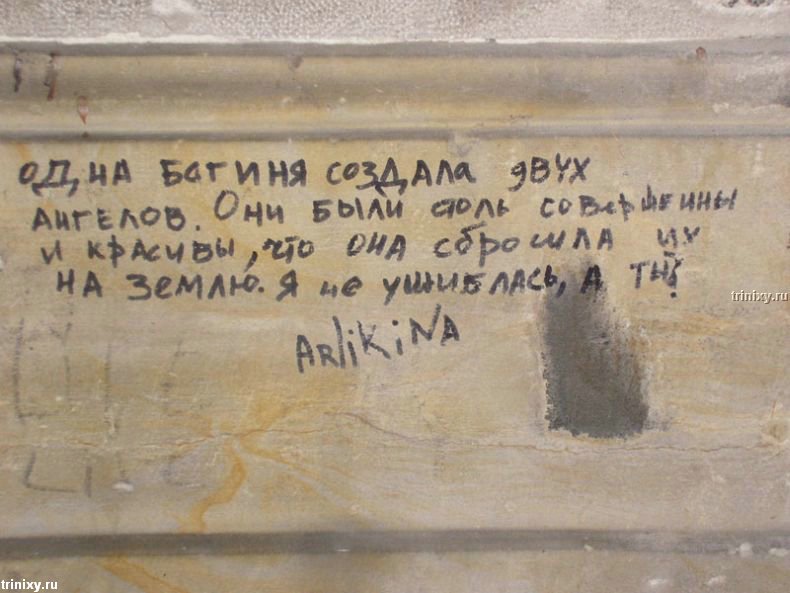 одна богиня создала двух
ангелов. Они были столь совершенны
и красивы, что она сбросила их
на землю. Я не ушиблась, а ты?
Arlikina
trinixy.ru
trinixy.ru